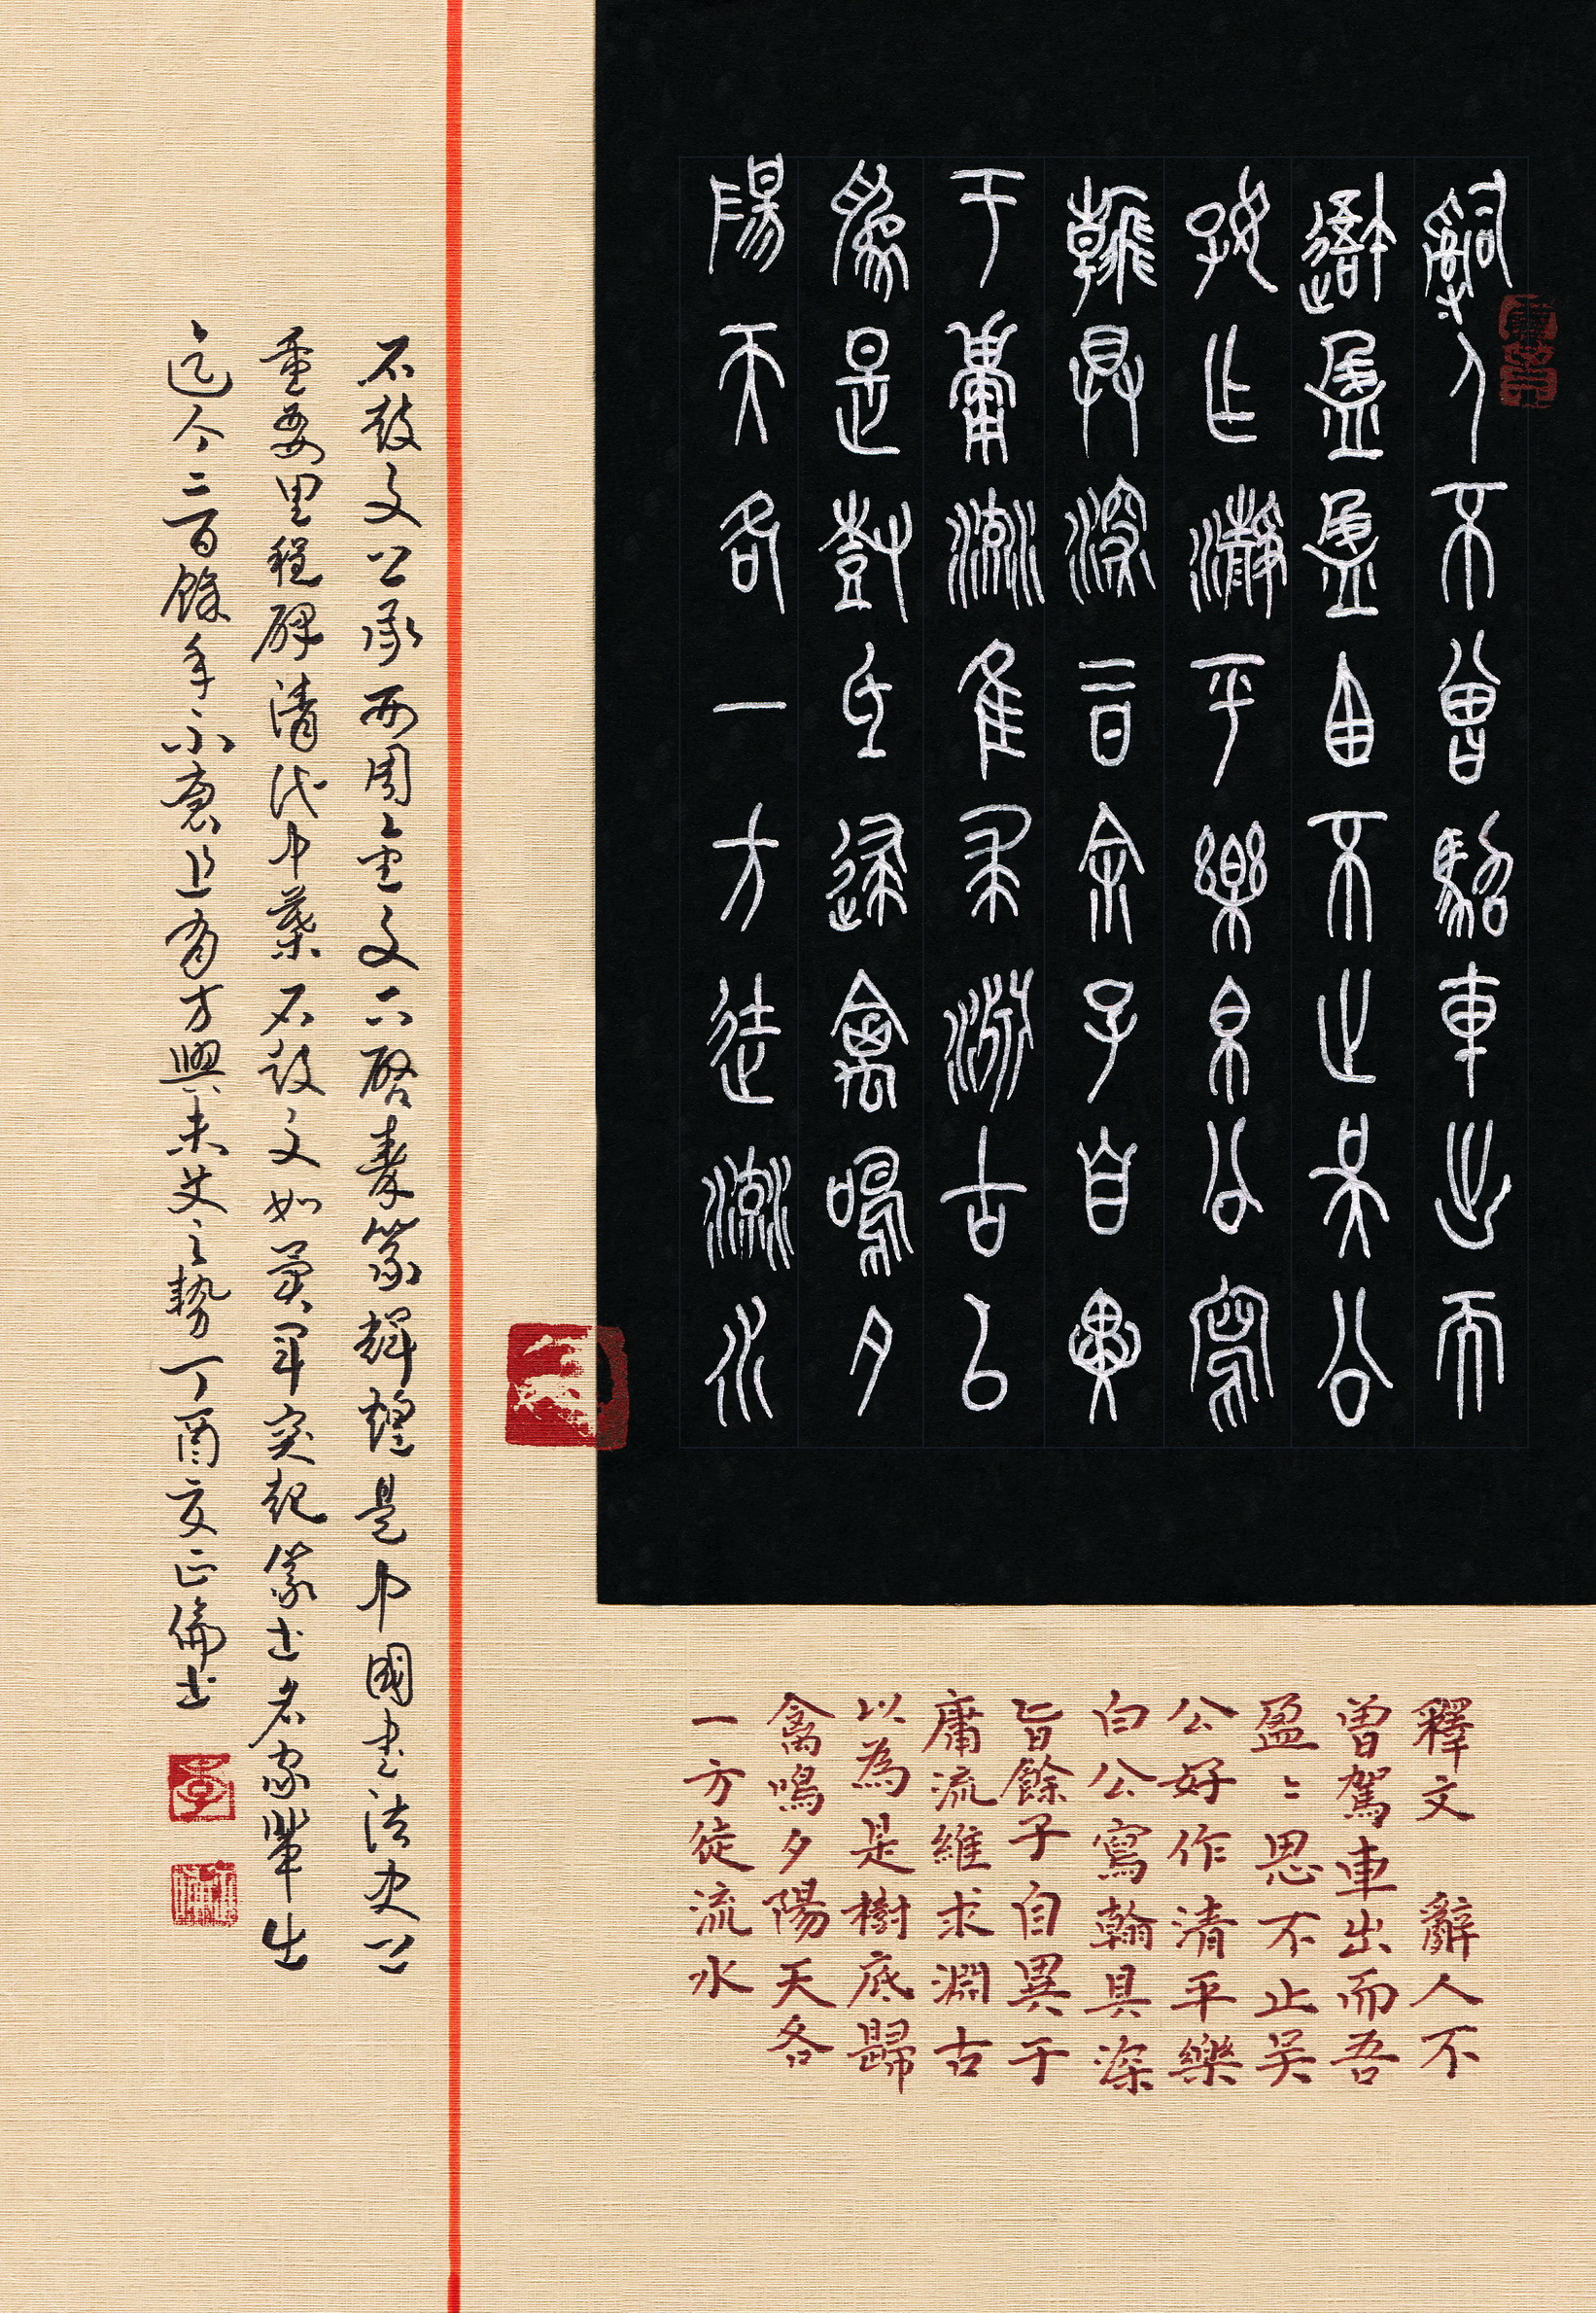 辭人不曾駕車出而
吾盈盈思不止吳公
好作清平樂白公寫
翰具深旨餘子自異
于庸流維求淵古以
為是樹底歸禽鳴夕
陽天各一方徒流水
釋文 辭人不
曾駕車出而吾
盈〻思不止吳
公好作清平樂
白公寫翰具深
旨餘子自異于
庸流維求淵古
以為是樹底歸
禽鳴夕陽天各
一方徒流水
石鼓文上承西周金文下啓秦篆輝煌是中國書法史上
重要里程碑清代中葉石鼓文如異軍突起篆書名家輩出
迄今二百餘年不衰且有方興未艾之勢丁酉夏正倫書